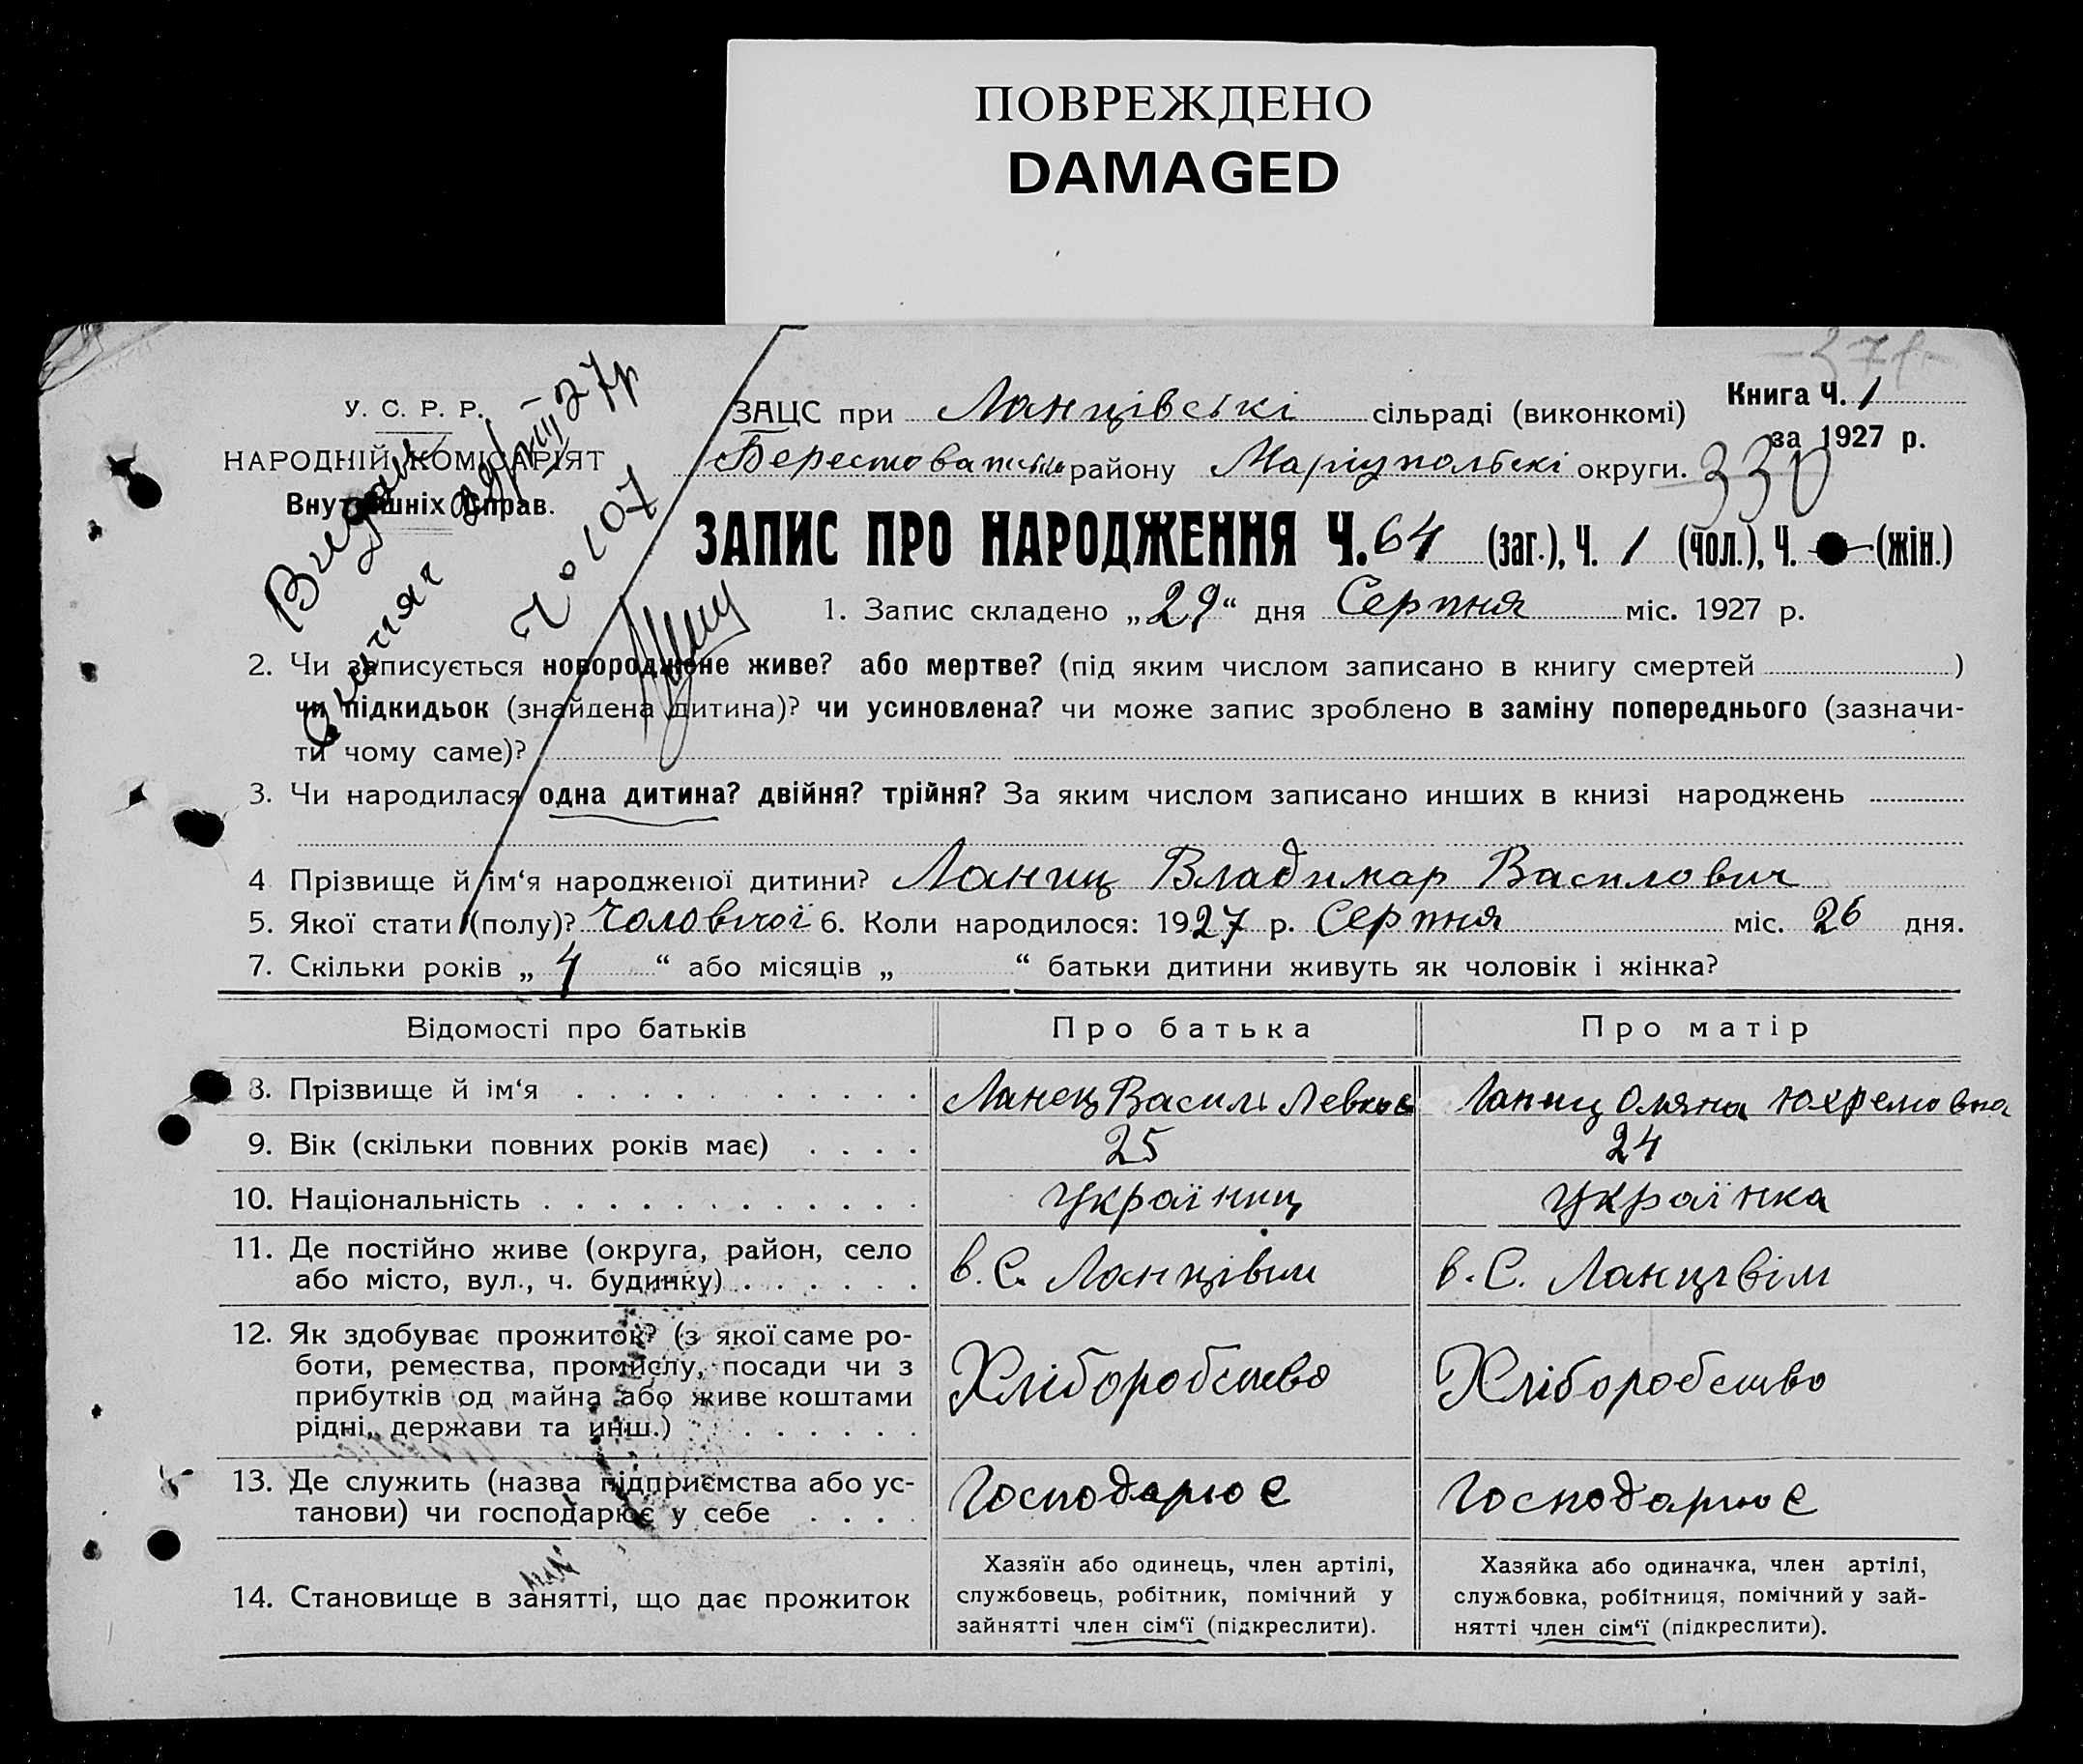 ПОВРЕЖДЕНО
DAMAGED
У. С. Р. Р.
НАРОДНІЙ КОМІСАРІЯТ
Внутрішніх Справ.
ч. 107
ЗАЦС при Ланцівські сільраді (виконкомі)
Книга Ч. 1
за 1927 р.
району Маріупольскі округи. 330
ЗАПИС ПРО НАРОДЖЕННЯ Ч. 64 (заг.), Ч. 1 (чол.), Ч. (жін.)
1. Запис складено „29“ дня Серпня міс. 1927 р.
2. Чи записується новороджене живе? або мертве? (під яким числом записано в книгу смертей )
чи підкидьок (знайдена дитина)? чи усиновлена? чи може запис зроблено в заміну попереднього (зазначи-
ти чому саме)?
3. Чи народилася одна дитина? двійня? трійня? За яким числом записано инших в книзі народжень
4 Прізвище й ім‘я народженої дитини? Ланиц Владимар Василович
5. Якої стати (полу)? Чоловічої 6. Коли народилося: 1927 р. Серпня міс. 26 дня.
7. Скільки років „ 4 “ або місяців „ “ батьки дитини живуть як чоловік і жінка?
Відомості про батьків Про батька Про матір
8. Прізвище й ім‘я Ланец Василь Ланиц Оляна Юхремовна
9. Вік (скільки повних років має) 25 24
10. Національність Україниц Українка
11. Де постійно живе (округа, район, село
або місто, вул., ч. будинку) в. С. Ланцівци в. С. Ланцівім
12. Як здобуває прожиток? (з якої саме ро-
боти, ремества, промислу, посади чи з
прибутків од майна або живе коштами
рідні, держави та инш.) Хліборобство Хліборобство
13. Де служить (назва підприємства або ус-
танови) чи господарює у себе Господарює Господарює
14. Становище в занятті, що дає прожиток
Хазяїн або одинець, член артілі,
службовець, робітник, помічний у
зайнятті член сім‘ї (підкреслити).
Хазяйка або одиначка, член артілі,
службовка, робітниця, помічний у зай-
нятті член сім‘ї (підкреслити).